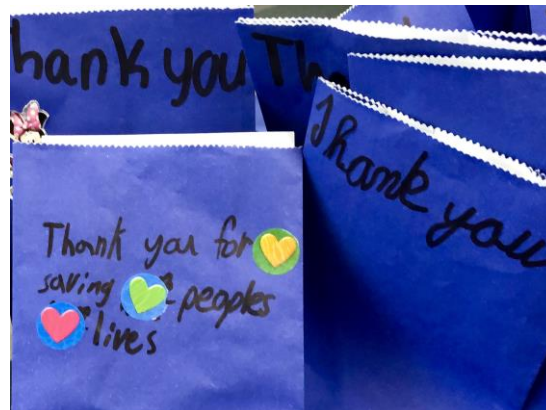 hank you
Th
Thank you
Thank you for
saving peoples
lives